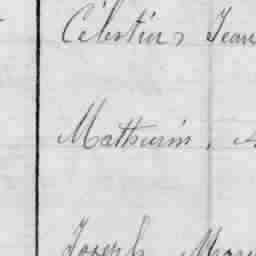 Célestin, Jean
Mathurin,
Joseph Mari